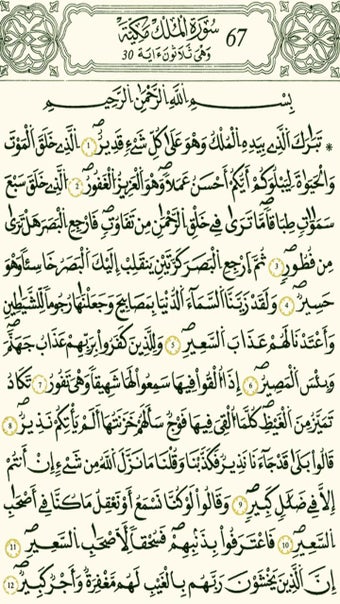 سُورَةُ الْمُلْكِ مَكِّيَّةٌ 67
وَهِيَ ثَلَاثُونَ ءَايَةً 30
بِسْمِ اللَّهِ الرَّحْمَٰنِ الرَّحِيمِ
* تَبَارَكَ الَّذِي بِيَدِهِ الْمُلْكُ وَهُوَ عَلَىٰ كُلِّ شَيْءٍ قَدِيرٌ 1 الَّذِي خَلَقَ الْمَوْتَ
وَالْحَيَوٰةَ لِيَبْلُوَكُمْ أَيُّكُمْ أَحْسَنُ عَمَلًا وَهُوَ الْعَزِيزُ الْغَفُورُ 2 الَّذِي خَلَقَ سَبْعَ
سَمَوَاتٍ طِبَاقًا مَّا تَرَىٰ فِي خَلْقِ الرَّحْمَٰنِ مِن تَفَاوُتٍ فَارْجِعِ الْبَصَرَ هَلْ تَرَىٰ
مِن فُطُورٍ 3 ثُمَّ ارْجِعِ الْبَصَرَ كَرَّتَيْنِ يَنقَلِبْ إِلَيْكَ الْبَصَرُ خَاسِئًا وَهُوَ
حَسِيرٌ 4 وَلَقَدْ زَيَّنَّا السَّمَاءَ الدُّنْيَا بِمَصَابِيحَ وَجَعَلْنَاهَا رُجُومًا لِّلشَّيَاطِينِ
وَأَعْتَدْنَا لَهُمْ عَذَابَ السَّعِيرِ 5 وَلِلَّذِينَ كَفَرُوا بِرَبِّهِمْ عَذَابُ جَهَنَّمَ
وَبِئْسَ الْمَصِيرُ 6 إِذَا أُلْقُوا فِيهَا سَمِعُوا لَهَا شَهِيقًا وَهِيَ تَفُورُ 7 تَكَادُ
تَمَيَّزُ مِنَ الْغَيْظِ كُلَّمَا أُلْقِيَ فِيهَا فَوْجٌ سَأَلَهُمْ خَزَنَتُهَا أَلَمْ يَأْتِكُمْ نَذِيرٌ 8
قَالُوا بَلَىٰ قَدْ جَاءَنَا نَذِيرٌ فَكَذَّبْنَا وَقُلْنَا مَا نَزَّلَ اللَّهُ مِن شَيْءٍ إِنْ أَنتُمْ
إِلَّا فِي ضَلَٰلٍ كَبِيرٍ 9 وَقَالُوا لَوْ كُنَّا نَسْمَعُ أَوْ نَعْقِلُ مَا كُنَّا فِي أَصْحَٰبِ
السَّعِيرِ 10 فَاعْتَرَفُوا بِذَنبِهِمْ فَسُحْقًا لِّأَصْحَٰبِ السَّعِيرِ 11
إِنَّ الَّذِينَ يَخْشَوْنَ رَبَّهُم بِالْغَيْبِ لَهُم مَّغْفِرَةٌ وَأَجْرٌ كَبِيرٌ 12